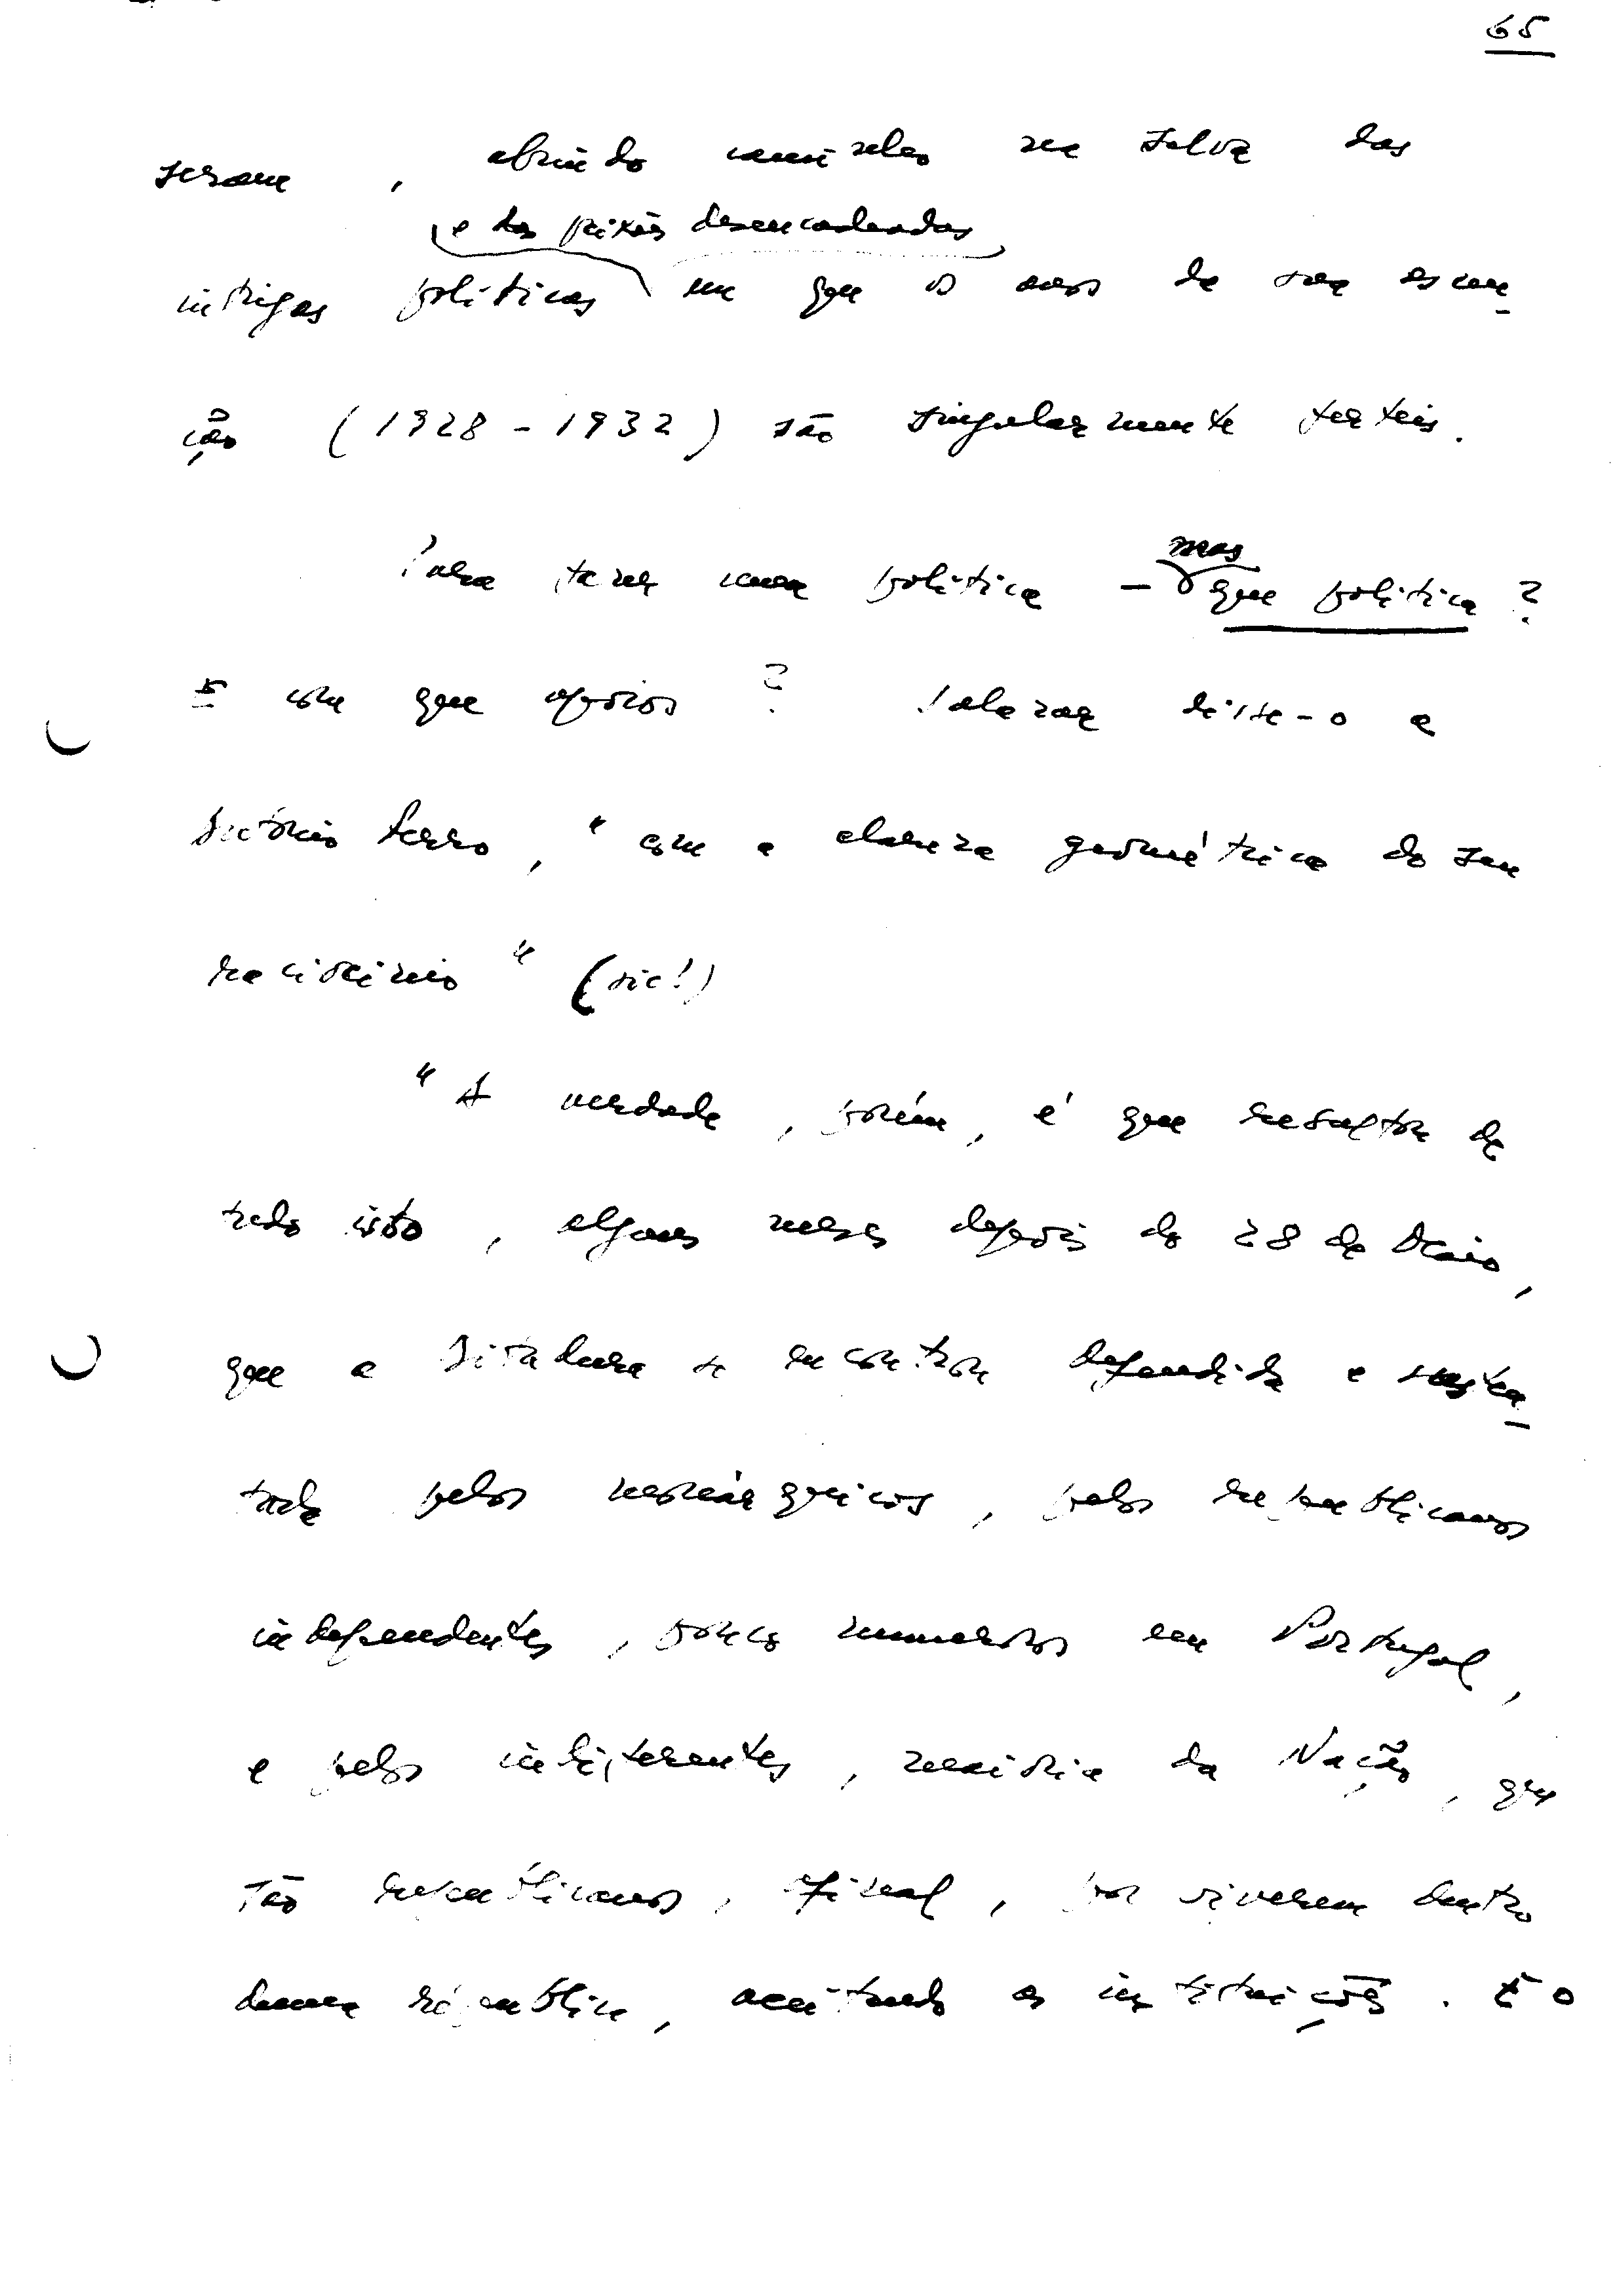 65
serena, abrindo caminho na selva das
e das paixões desencadeadas
intrigas políticas em que os anos de sua ascen-
ção (1928-1932) são singularmente férteis.
mas
Para fazer uma política - que política?
E com que apoios? Salazar disse-o a
António Ferro, "com a clareza geométrica do seu
raciocínio" (sic!)
"A verdade, porém, é que resultou de
tudo isto, alguns meses depois do 28 de Maio,
que a Ditadura se encontrou defendida e susten-
tada pelos monárquicos, pelos republicanos
independentes, pouco numerosos em Portugal,
e pelos indiferentes, maioria da Nação, que
são republicanos, afinal, por viverem dentro
duma república, aceitando as instituições. E o